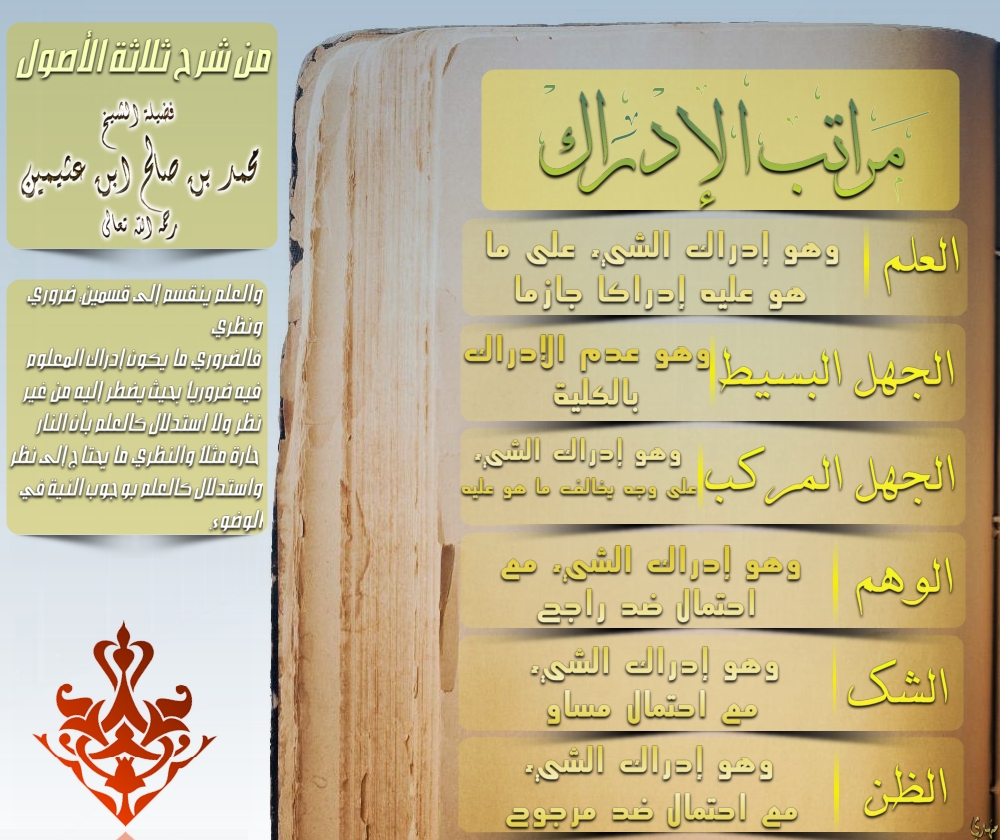 مراتب الإدراك
العلم
وهو إدراك الشيء على ما
هو عليه إدراكا جازما
الجهل البسيط
وهو عدم الإدراك
بالكلية
الجهل المركب
وهو إدراك الشيء
على وجه يخالف ما هو عليه
الوهم
وهو إدراك الشيء مع
احتمال ضد راجح
الشك
وهو إدراك الشيء
مع احتمال مساو
الظن
وهو إدراك الشيء
مع احتمال ضد مرجوح
من شرح ثلاثة الأصول
فضيلة الشيخ
محمد بن صالح ابن عثيمين
رحمه الله تعالى
والعلم ينقسم إلى قسمين: ضروري
ونظري
فالضروري ما يكون إدراك المعلوم
فيه ضروريا بحيث يضطر إليه من غير
نظر ولا استدلال كالعلم بأن النار
حارة مثلا والنظري ما يحتاج إلى نظر
واستدلال كالعلم بوجوب النية في
الوضوء.